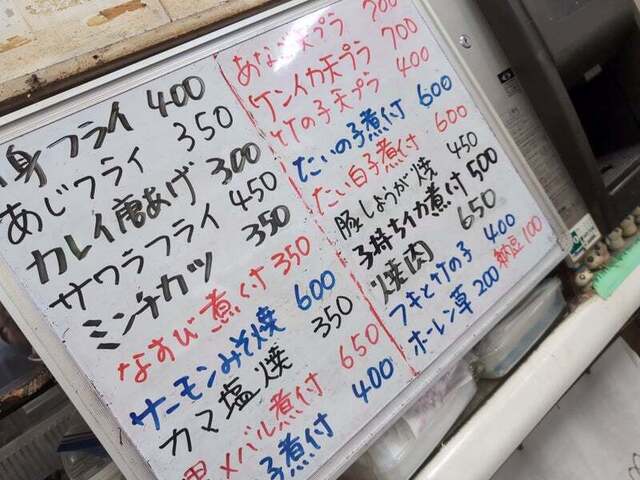 身フライ 400
あじフライ 350
カレイ唐あげ 300
サワラフライ 450
ミンチカツ 350
なすび煮付 350
サーモンみそ焼 600
カマ塩焼 350
メバル煮付 650
子煮付 400
あなご天プラ 700
ケンイカ天プラ 700
竹の子天プラ 400
たいの子煮付 600
たい白子煮付 600
豚しょうが焼 450
子持ちイカ煮付 500
焼肉 650
フキと竹の子 400
ホーレン草 200 納豆 100